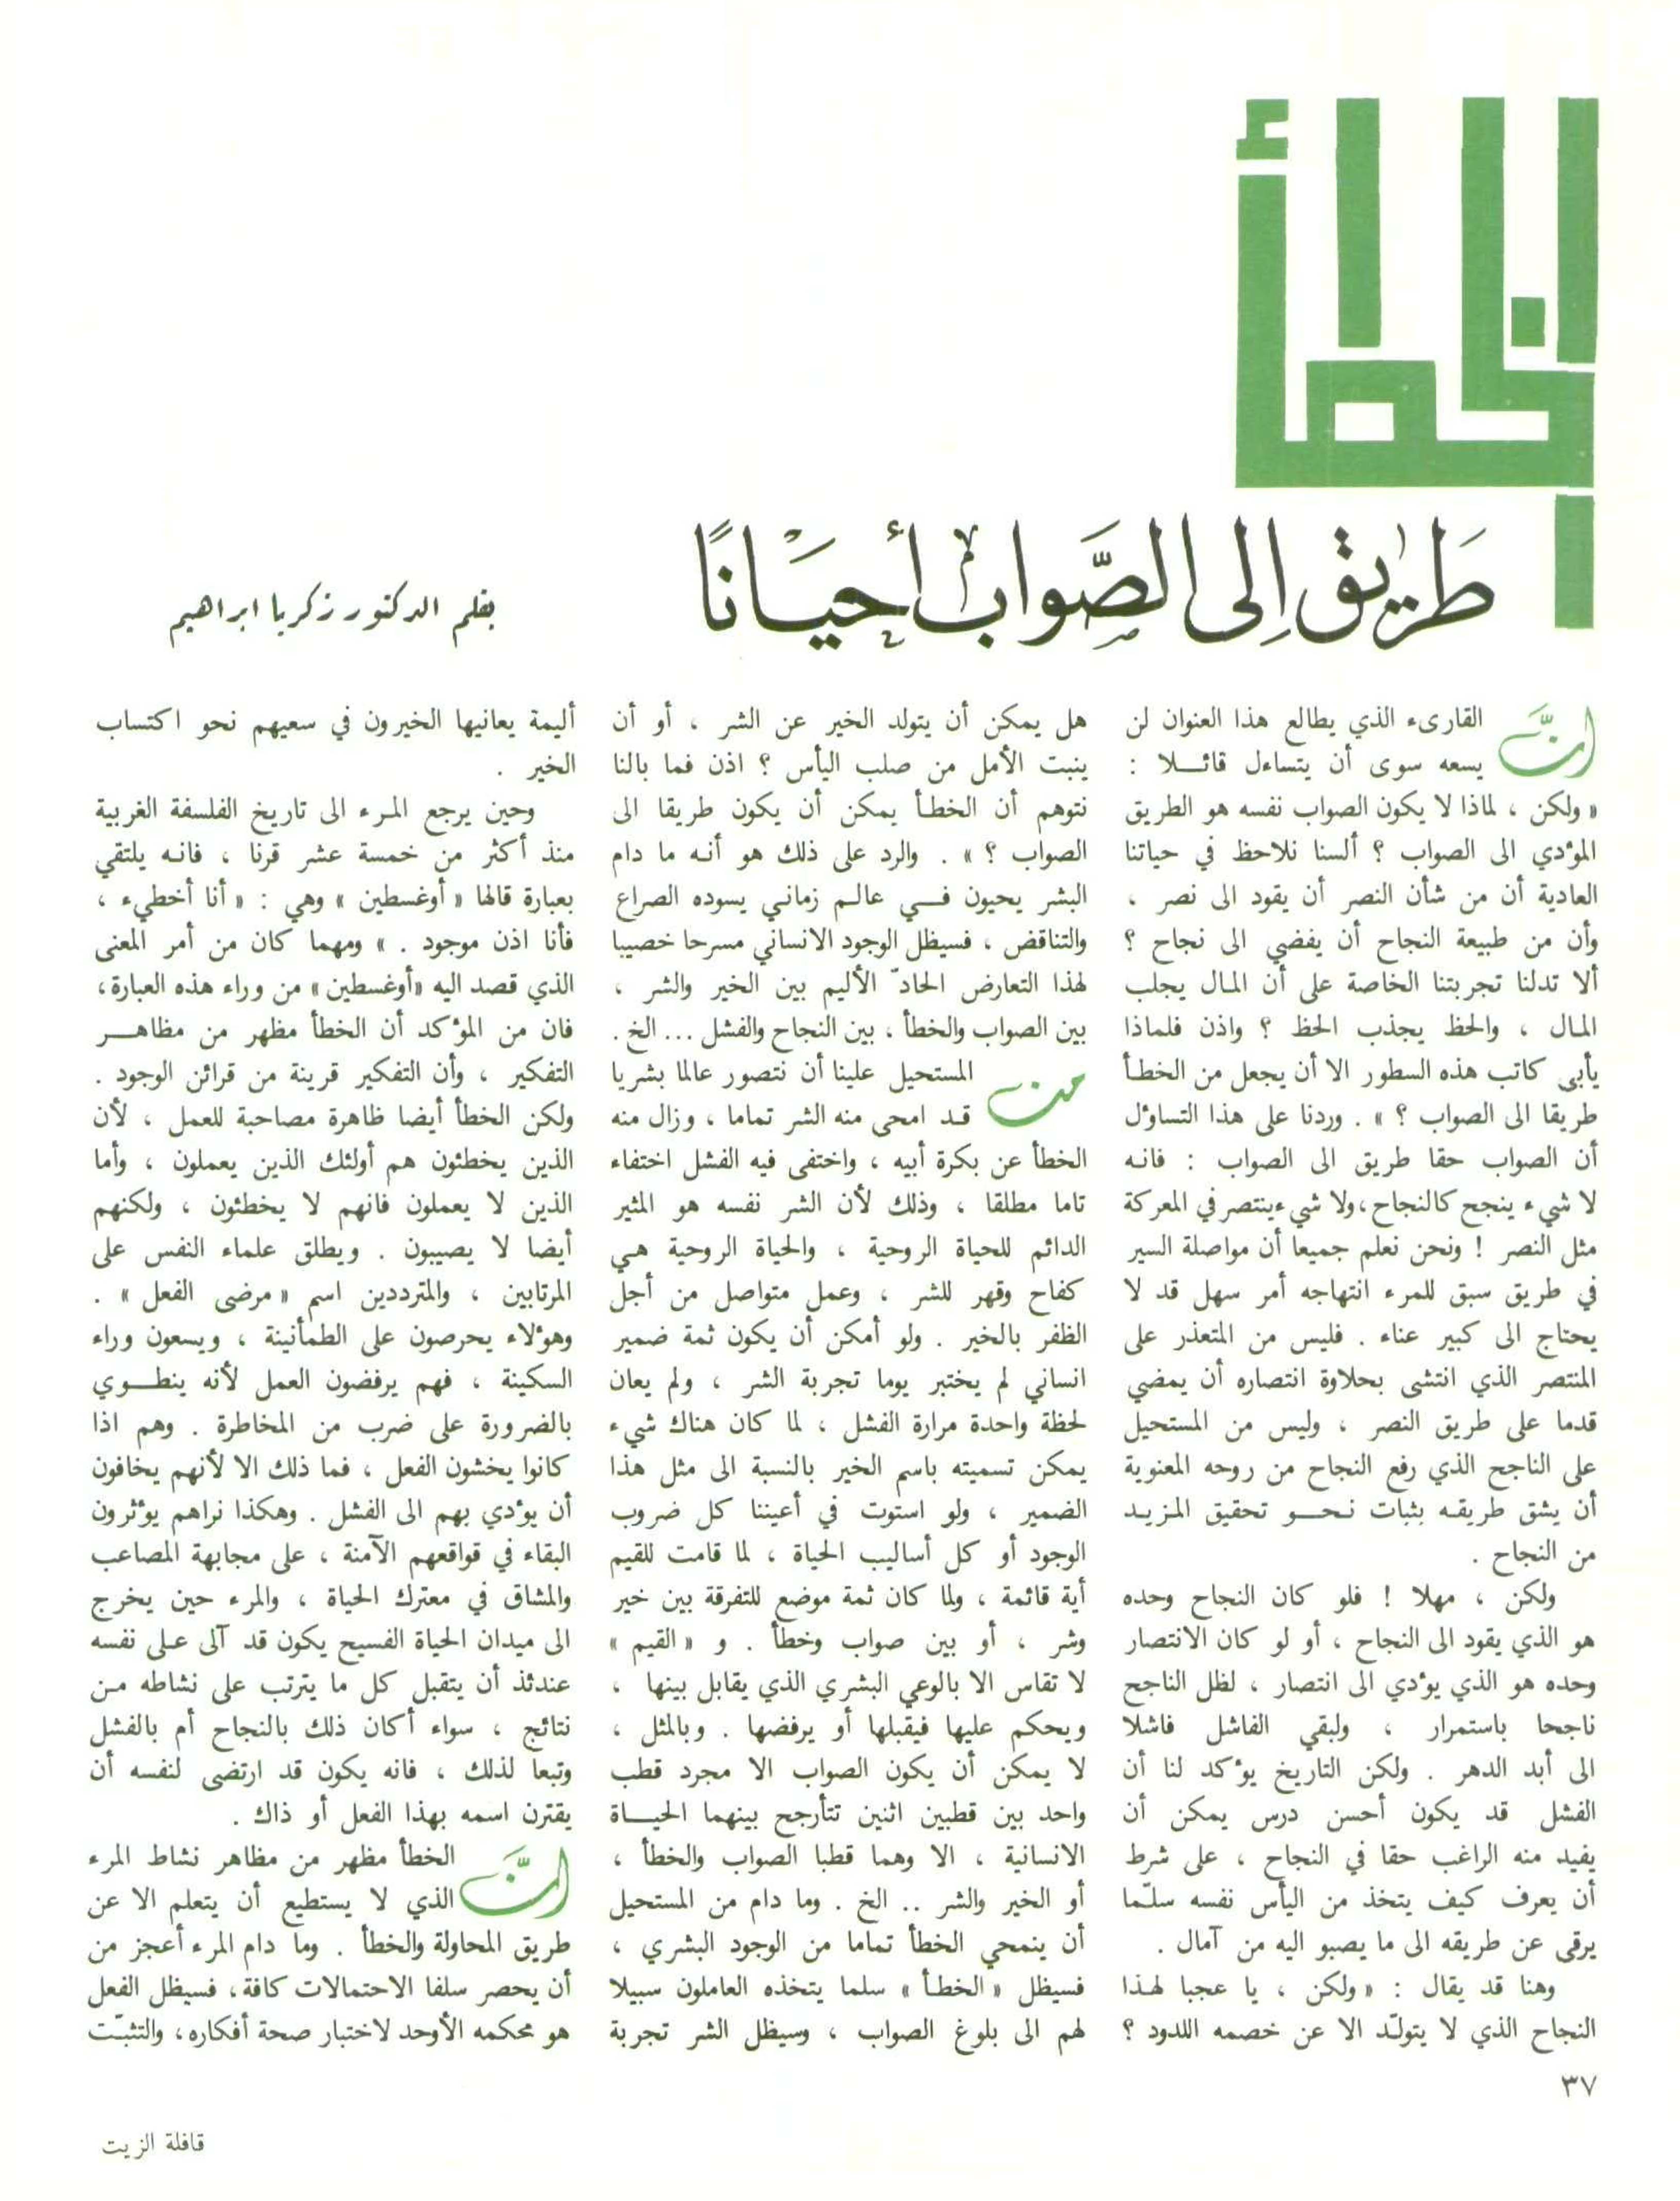 الخطأ
طريق إلى الصواب أحيانًا
بقلم الدكتور زكريا ابراهيم
انَّ القارىء الذي يطالع هذا العنوان لن
يسعه سوى أن يتساءل قائـلا :
« ولكن ، لماذا لا يكون الصواب نفسه هو الطريق
المؤدي الى الصواب ؟ ألسنا نلاحظ في حياتنا
العادية أن من شأن النصر أن يقود الى نصر ،
وأن من طبيعة النجاح أن يفضي الى نجاح ؟
ألا تدلنا تجربتنا الخاصة على أن المال يجلب
المال ، والحظ يجذب الحظ ؟ واذن فلماذا
يأبى كاتب هذه السطور الا أن يجعل من الخطأ
طريقا الى الصواب ؟ » . وردنا على هذا التساؤل
أن الصواب حقا طريق الى الصواب : فانه
لا شيء ينجح كالنجاح،ولا شيء ينتصر في المعركة
مثل النصر ! ونحن نعلم جميعا أن مواصلة السير
في طريق سبق للمرء انتهاجه أمر سهل قد لا
يحتاج الى كبير عناء . فليس من المتعذر على
المنتصر الذي انتشى بحلاوة انتصاره أن يمضي
قدما على طريق النصر ، وليس من المستحيل
على الناجح الذي رفع النجاح من روحه المعنوية
أن يشق طريقه بثبات نحـو تحقيق المزيد
من النجاح .
ولكن ، مهلا ! فلو كان النجاح وحده
هو الذي يقود الى النجاح ، أو لو كان الانتصار
وحده هو الذي يؤدي الى انتصار ، لظل الناجح
ناجحا باستمرار ، ولبقي الفاشل فاشلا
الى أبد الدهر . ولكن التاريخ يؤكد لنا أن
الفشل قد يكون أحسن درس يمكن أن
يفيد منه الراغب حقا في النجاح ، على شرط
أن يعرف كيف يتخذ من اليأس نفسه سلّما
يرقى عن طريقه الى ما يصبو اليه من آمال .
وهنا قد يقال : « ولكن ، يا عجبا لهذا
النجاح الذي لا يتولّد الا عن خصمه اللدود ؟
هل يمكن أن يتولد الخير عن الشر ، أو أن
ينبت الأمل من صلب اليأس ؟ اذن فما بالنا
نتوهم أن الخطأ يمكن أن يكون طريقا الى
الصواب ؟ » . والرد على ذلك هو أنه ما دام
البشر يحيون فـي عالم زماني يسوده الصراع
والتناقض ، فسيظل الوجود الانساني مسرحا خصيبا
لهذا التعارض الحادّ الأليم بين الخير والشر ،
بين الصواب والخطأ ، بين النجاح والفشل ... الخ .
من المستحيل علينا أن نتصور عالما بشريا
قد امحى منه الشر تماما ، وزال منه
الخطأ عن بكرة أبيه ، واختفى فيه الفشل اختفاء
تاما مطلقا ، وذلك لأن الشر نفسه هو المثير
الدائم للحياة الروحية ، والحياة الروحية هي
كفاح وقهر للشر ، وعمل متواصل من أجل
الظفر بالخير . ولو أمكن أن يكون ثمة ضمير
انساني لم يختبر يوما تجربة الشر ، ولم يعان
لحظة واحدة مرارة الفشل ، لما كان هناك شيء
يمكن تسميته باسم الخير بالنسبة الى مثل هذا
الضمير ، ولو استوت في أعيننا كل ضروب
الوجود أو كل أساليب الحياة ، لما قامت للقيم
أية قائمة ، ولما كان ثمة موضع للتفرقة بين خير
وشر ، أو بين صواب وخطأ . و « القيم »
لا تقاس الا بالوعي البشري الذي يقابل بينها ،
ويحكم عليها فيقبلها أو يرفضها . وبالمثل ،
لا يمكن أن يكون الصواب الا مجرد قطب
واحد بين قطبين اثنين تتأرجح بينهما الحيـاة
الانسانية ، الا وهما قطبا الصواب والخطأ ،
أو الخير والشر .. الخ . وما دام من المستحيل
أن ينمحي الخطأ تماما من الوجود البشري ،
فسيظل « الخطأ » سلما يتخذه العاملون سبيلا
لهم الى بلوغ الصواب ، وسيظل الشر تجربة
أليمة يعانيها الخيرون في سعيهم نحو اكتساب
الخير .
وحين يرجع المرء الى تاريخ الفلسفة الغربية
منذ أكثر من خمسة عشر قرنا ، فانه يلتقي
بعبارة قالها « أوغسطين » وهي : « أنا أخطيء ،
فأنا اذن موجود . » ومهما كان من أمر المعنى
الذي قصد اليه «أوغسطين» من وراء هذه العبارة،
فان من المؤكد أن الخطأ مظهر من مظاهـر
التفكير ، وأن التفكير قرينة من قرائن الوجود .
ولكن الخطأ أيضا ظاهرة مصاحبة للعمل ، لأن
الذين يخطئون هم أولئك الذين يعملون ، وأما
الذين لا يعملون فانهم لا يخطئون ، ولكنهم
أيضا لا يصيبون . ويطلق علماء النفس على
المرتابين ، والمترددين اسم « مرضى الفعل » .
وهؤلاء يحرصون على الطمأنينة ، ويسعون وراء
السكينة ، فهم يرفضون العمل لأنه ينطـوي
بالضرورة على ضرب من المخاطرة . وهم اذا
كانوا يخشون الفعل ، فما ذلك الا لأنهم يخافون
أن يؤدي بهم الى الفشل . وهكذا نراهم يؤثرون
البقاء في قواقعهم الآمنة ، على مجابهة المصاعب
والمشاق في معترك الحياة ، والمرء حين يخرج
الى ميدان الحياة الفسيح يكون قد آلى على نفسه
عندئذ أن يتقبل كل ما يترتب على نشاطه من
نتائج ، سواء أكان ذلك بالنجاح أم بالفشل
وتبعا لذلك ، فانه يكون قد ارتضى لنفسه أن
يقترن اسمه بهذا الفعل أو ذاك .
انَّ الخطأ مظهر من مظاهر نشاط المرء
الذي لا يستطيع أن يتعلم الا عن
طريق المحاولة والخطأ . وما دام المرء أعجز من
أن يحصر سلفا الاحتمالات كافة، فسيظل الفعل
هو محكمه الأوحد لاختبار صحة أفكاره، والتثبّت
٣٧
قافلة الزيت